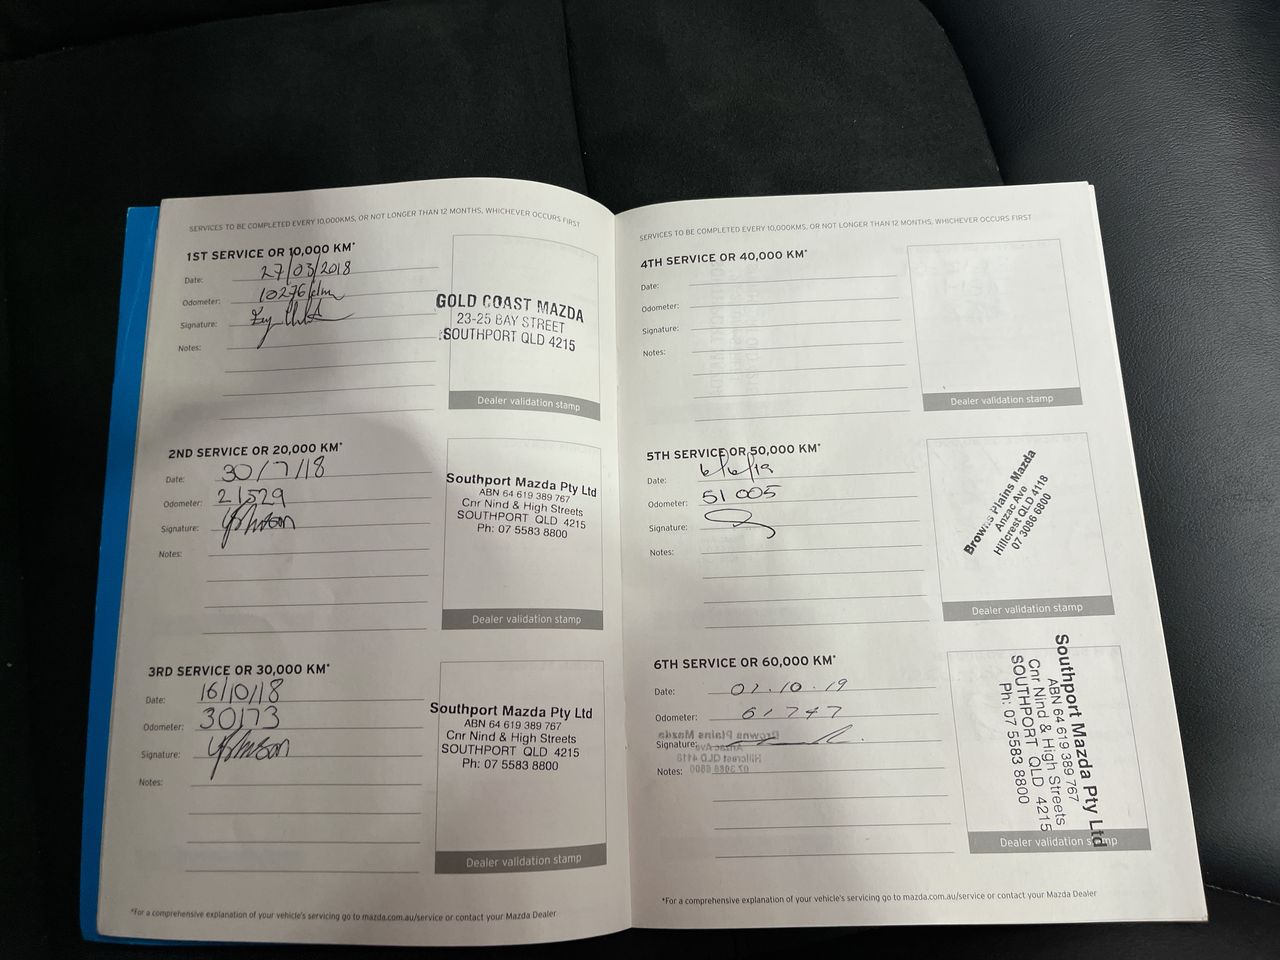 SERVICES TO BE COMPLETED EVERY 10,000KMS, OR NOT LONGER THAN 12 MONTHS, WHICHEVER OCCURS FIRST
1ST SERVICE OR 10,000 KM*
Date: 27/03/2018
Odometer: 10276
Signature:
Notes:
GOLD COAST MAZDA
23-25 BAY STREET
SOUTHPORT QLD 4215
Dealer validation stamp
2ND SERVICE OR 20,000 KM*
Date: 30/7/18
Odometer: 21529
Signature: Johnson
Notes:
Southport Mazda Pty Ltd
ABN 64 619 389 767
Cnr Nind & High Streets
SOUTHPORT QLD 4215
Ph: 07 5583 8800
Dealer validation stamp
3RD SERVICE OR 30,000 KM*
Date: 16/10/18
Odometer: 30173
Signature: Johnson
Notes:
Southport Mazda Pty Ltd
ABN 64 619 389 767
Cnr Nind & High Streets
SOUTHPORT QLD 4215
Ph: 07 5583 8800
Dealer validation stamp
*For a comprehensive explanation of your vehicle's servicing go to mazda.com.au/service or contact your Mazda Dealer
SERVICES TO BE COMPLETED EVERY 10,000KMS, OR NOT LONGER THAN 12 MONTHS, WHICHEVER OCCURS FIRST
4TH SERVICE OR 40,000 KM*
Date:
Odometer:
Signature:
Notes:
Dealer validation stamp
5TH SERVICE OR 50,000 KM*
Date: 6/6/19
Odometer: 51005
Signature:
Notes:
Browns Plains Mazda
Anzac Ave
Hillcrest QLD 4118
07 3086 6800
Dealer validation stamp
6TH SERVICE OR 60,000 KM*
Date: 02.10.19
Odometer: 61747
Signature:
Notes:
Browns Plains Mazda
Anzac Ave
Hillcrest QLD 4118
07 3086 6800
Southport Mazda Pty Ltd
ABN 64 619 389 767
Cnr Nind & High Streets
SOUTHPORT QLD 4215
Ph: 07 5583 8800
Dealer validation stamp
*For a comprehensive explanation of your vehicle's servicing go to mazda.com.au/service or contact your Mazda Dealer